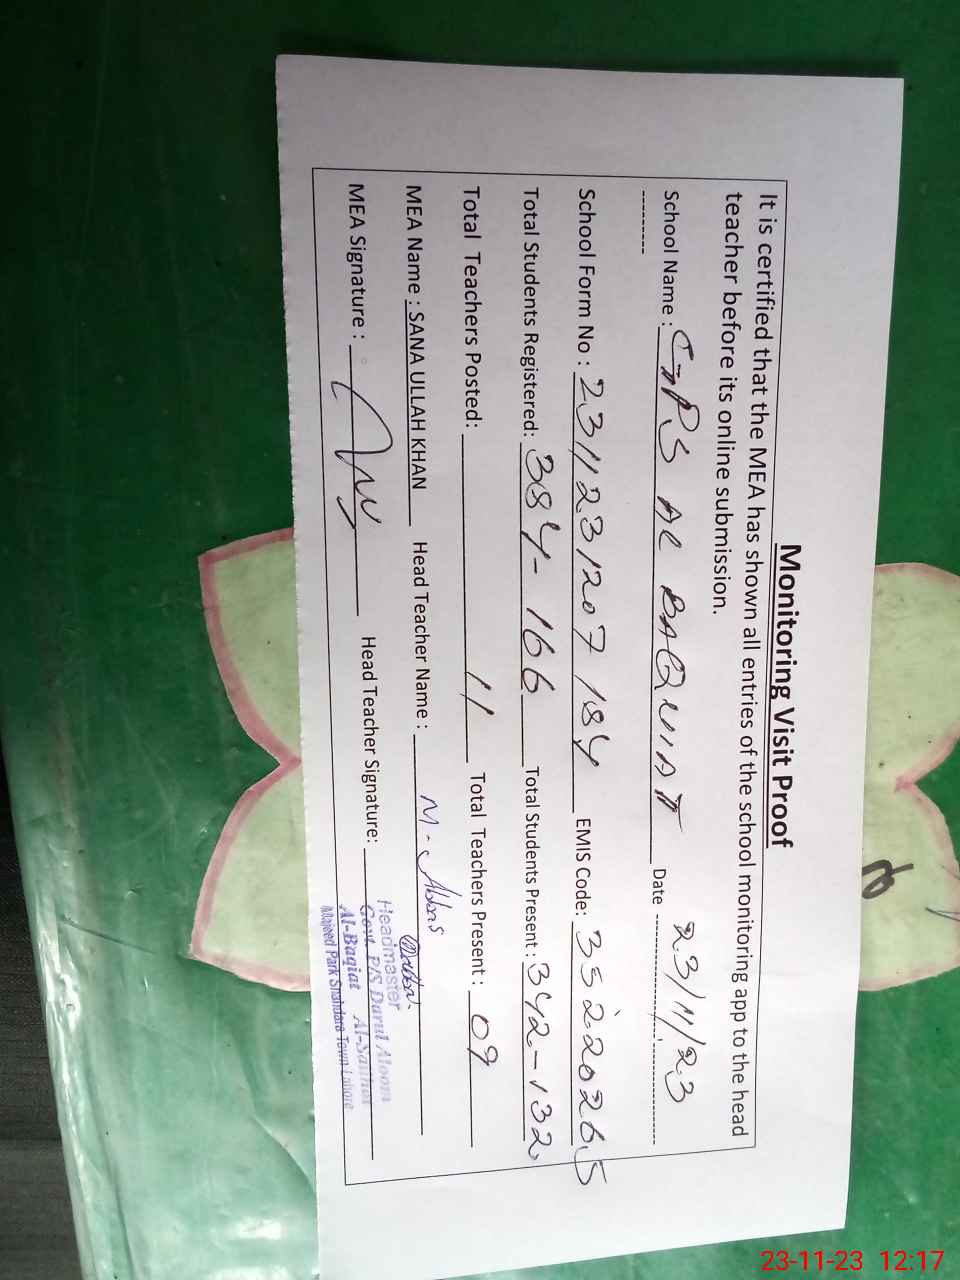 Monitoring Visit Proof
It is certified that the MEA has shown all entries of the school monitoring app to the head
teacher before its online submission.
School Name : GPS AL BAQUIAT Date 23/11/23
School Form No : 2311231207184 EMIS Code: 35220265
Total Students Registered: 384-166 Total Students Present : 342-132
Total Teachers Posted: 11 Total Teachers Present : 09
MEA Name : SANA ULLAH KHAN Head Teacher Name : M. Abbas
MEA Signature : Head Teacher Signature:
Headmaster
Govt. P/S Darul Aloom
Al-Baqiat
Majeed Park Shahdara Town Lahore
23-11-23 12:17